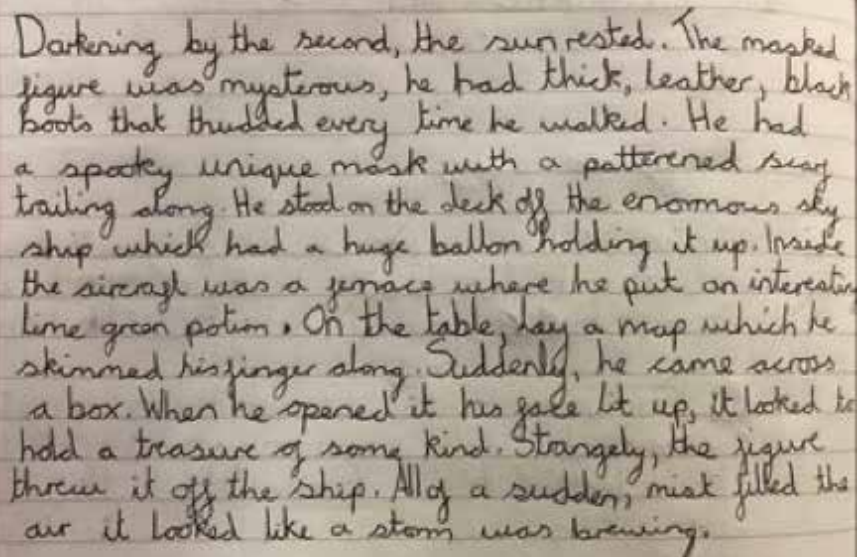 Darkening by the second, the sun rested. The masked
figure was mysterous, he had thick, leather, black
boots that thudded every time he walked. He had
a spooky unique mask with a patterened scarf
trailing along. He stood on the deck off the enormous sky
ship which had a huge ballon holding it up. Inside
the aircraft was a fernace where he put an interesting
lime green potion. On the table, lay a map which he
skimmed his finger along. Suddenly, he came across
a box. When he opened it his face lit up, it looked to
hold a treasure of some kind. Strangely, the figure
threw it off the ship. All of a sudden, mist filled the
air it looked like a storm was brewing.